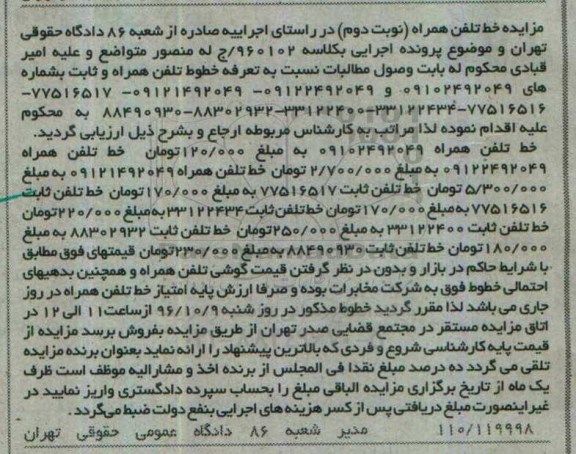 مزایده خط تلفن همراه (نوبت دوم) در راستای اجراییه صادره از شعبه ۸۶ دادگاه حقوقی
تهران و موضوع پرونده اجرایی بکلاسه ۹۶۰۱۰۲/ج له منصور متواضع و علیه امیر
قبادی محکوم له بابت وصول مطالبات نسبت به تعرفه خطوط تلفن همراه و ثابت بشماره
های ۰۹۱۰۲۴۹۲۰۴۹ و ۰۹۱۲۲۴۹۲۰۴۹- ۰۹۱۲۱۴۹۲۰۴۹- ۷۷۵۱۶۵۱۷-
۷۷۵۱۶۵۱۶-۳۳۱۲۲۴۳۴-۳۳۱۲۲۴۰۰-۸۸۳۰۲۹۳۲-۸۸۴۹۰۹۳۰ به محکوم
علیه اقدام نموده لذا مراتب به کارشناس مربوطه ارجاع و بشرح ذیل ارزیابی گردید.
خط تلفن همراه ۰۹۱۰۲۴۹۲۰۴۹ به مبلغ ۱۲۰/۰۰۰تومان خط تلفن همراه
۰۹۱۲۲۴۹۲۰۴۹ به مبلغ ۲/۷۰۰/۰۰۰ تومان خط تلفن همراه ۰۹۱۲۱۴۹۲۰۴۹ به مبلغ
۵/۳۰۰/۰۰۰ تومان خط تلفن ثابت ۷۷۵۱۶۵۱۷ به مبلغ ۱۷۰/۰۰۰تومان خط تلفن ثابت
۷۷۵۱۶۵۱۶ به مبلغ ۱۷۰/۰۰۰تومان خط تلفن ثابت ۳۳۱۲۲۴۳۴ به مبلغ ۲۲۰/۰۰۰تومان
خط تلفن ثابت ۳۳۱۲۲۴۰۰ به مبلغ ۲۵۰/۰۰۰تومان خط تلفن ثابت ۸۸۳۰۲۹۳۲ به مبلغ
۱۸۰/۰۰۰تومان خط تلفن ثابت ۸۸۴۹۰۹۳۰ به مبلغ ۲۳۰/۰۰۰تومان قیمتهای فوق مطابق
با شرایط حاکم در بازار و بدون در نظر گرفتن قیمت گوشی تلفن همراه و همچنین بدهیهای
احتمالی خطوط فوق به شرکت مخابرات بوده و صرفا ارزش پایه امتیاز خط تلفن همراه در روز
جاری می باشد لذا مقرر گردید خطوط مذکور در روز شنبه ۹۶/۱۰/۹ ازساعت۱۱ الی ۱۲ در
اتاق مزایده مستقر در مجتمع قضایی صدر تهران از طریق مزایده بفروش برسد مزایده از
قیمت پایه کارشناسی شروع و فردی که بالاترین پیشنهاد را ارائه نماید بعنوان برنده مزایده
تلقی می گردد ده درصد مبلغ نقدا فی المجلس از برنده اخذ و مشارالیه موظف است ظرف
یک ماه از تاریخ برگزاری مزایده الباقی مبلغ را بحساب سپرده دادگستری واریز نمایید در
غیراینصورت مبلغ دریافتی پس از کسر هزینه های اجرایی بنفع دولت ضبط می گردد.
۱۱۰/۱۱۹۹۹۸ مدیر شعبه ۸۶ دادگاه عمومی حقوقی تهران